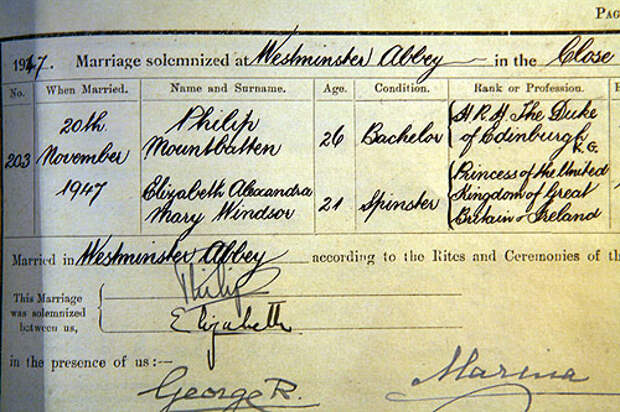 PAG
1947. Marriage solemnized at Westminster Abbey in the Close
No. When Married. Name and Surname. Age. Condition. Rank or Profession.
203 20th November 1947 Philip Mountbatten 26 Bachelor H.R.H. The Duke of Edinburgh K.G.
Elizabeth Alexandra Mary Windsor 21 Spinster Princess of the United Kingdom of Great Britain & Ireland
Married in Westminster Abbey according to the Rites and Ceremonies of th
This Marriage was solemnized between us,
Philip
Elizabeth
in the presence of us:—
George R. Marina